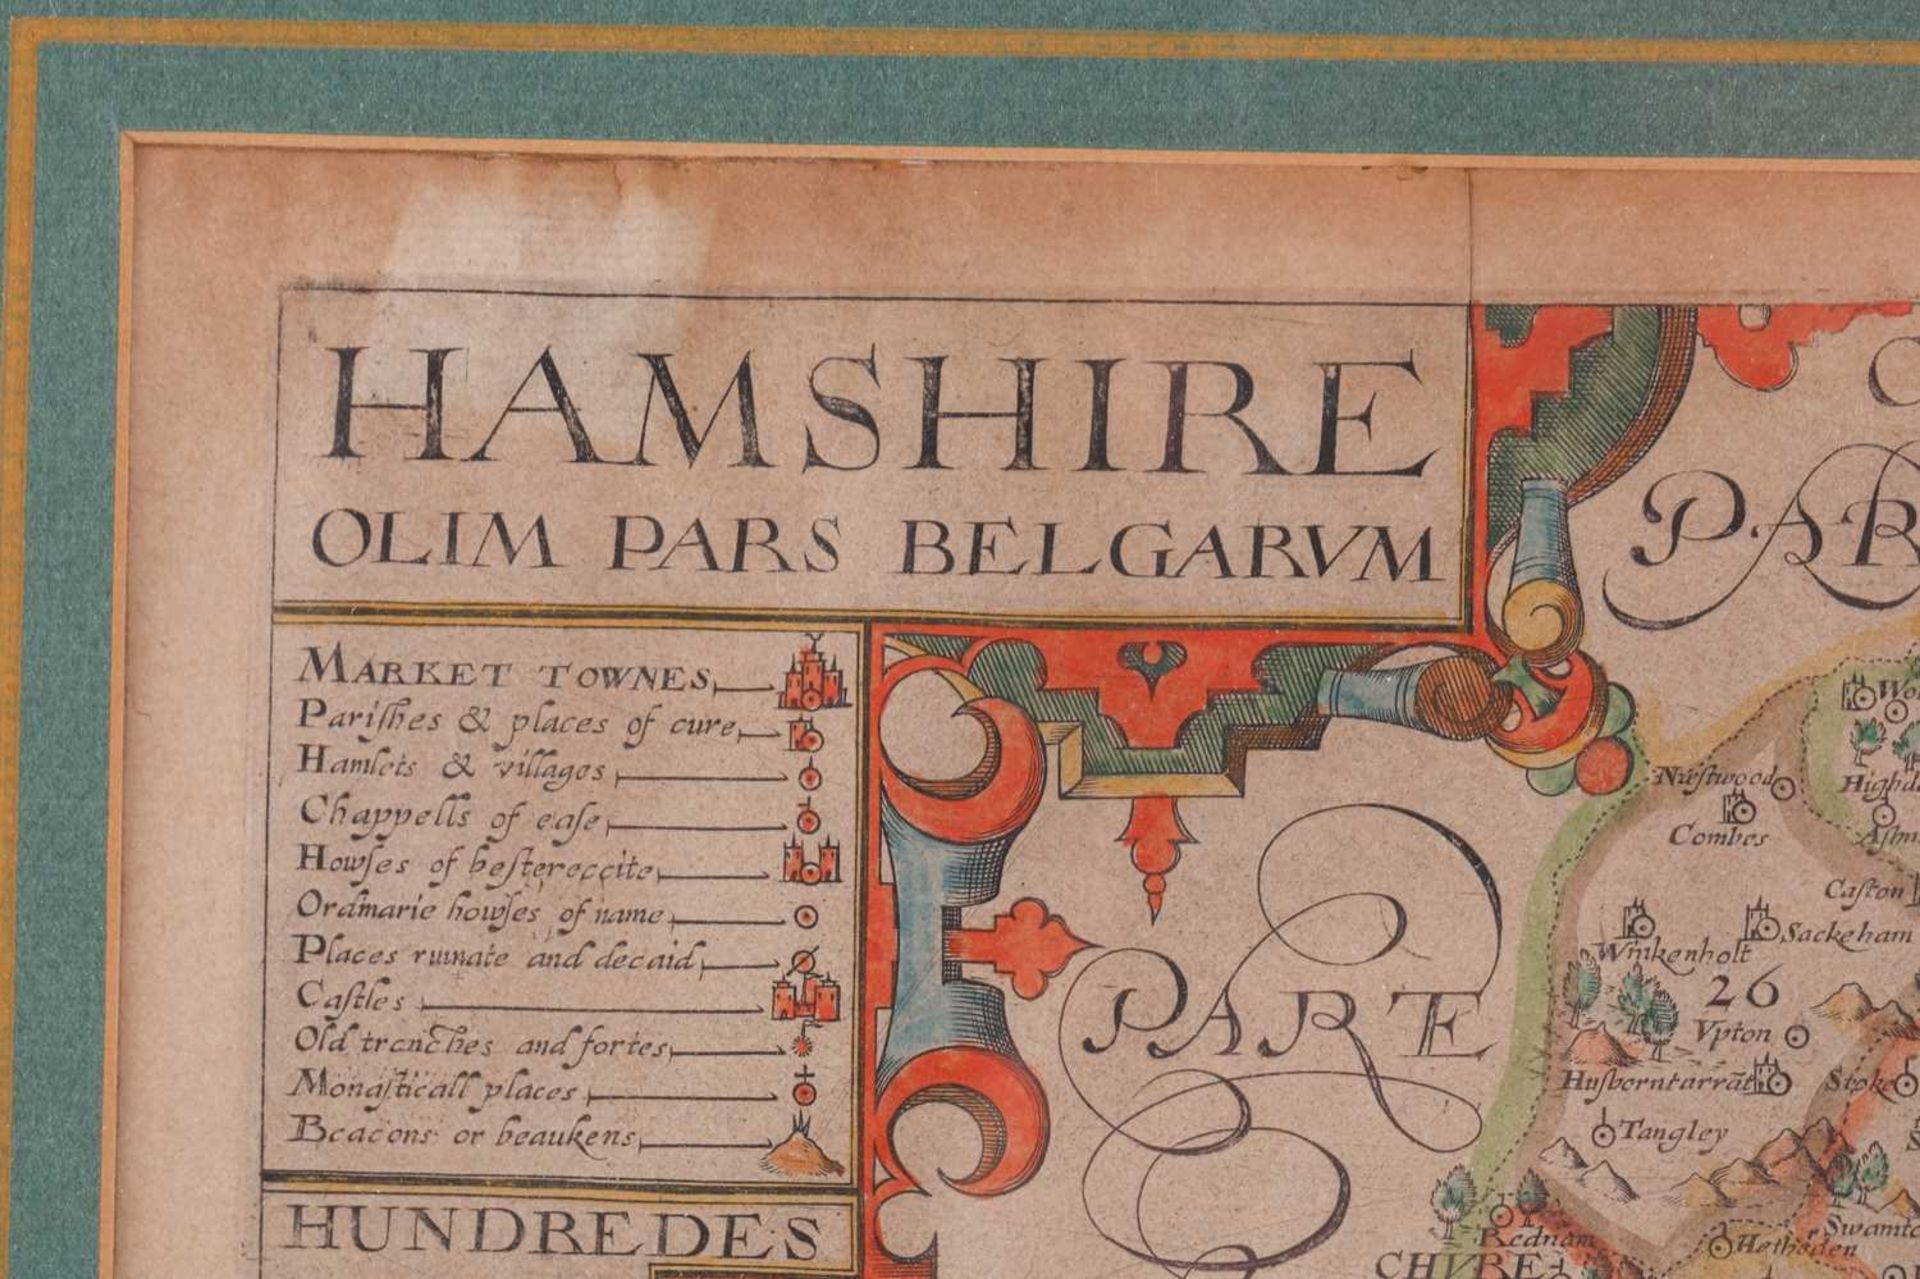 HAMSHIRE
OLIM PARS BELGARVM
MARKET TOWNES
Pariſhes & places of cure
Hamlets & villages
Chappells of eaſe
Howſes of beſtereccite
Ordinarie howſes of name
Places ruinate and decaid
Caſtles
Old trenches and fortes
Monaſticall places
Beacons or beaukens
HUNDREDES
PAR
PARTE
Combes
Caſton
Winkenholt
Sackeham
26
Vpton
Huſborntarrāt
Stoke
Tangley
Rednam
Hethoden